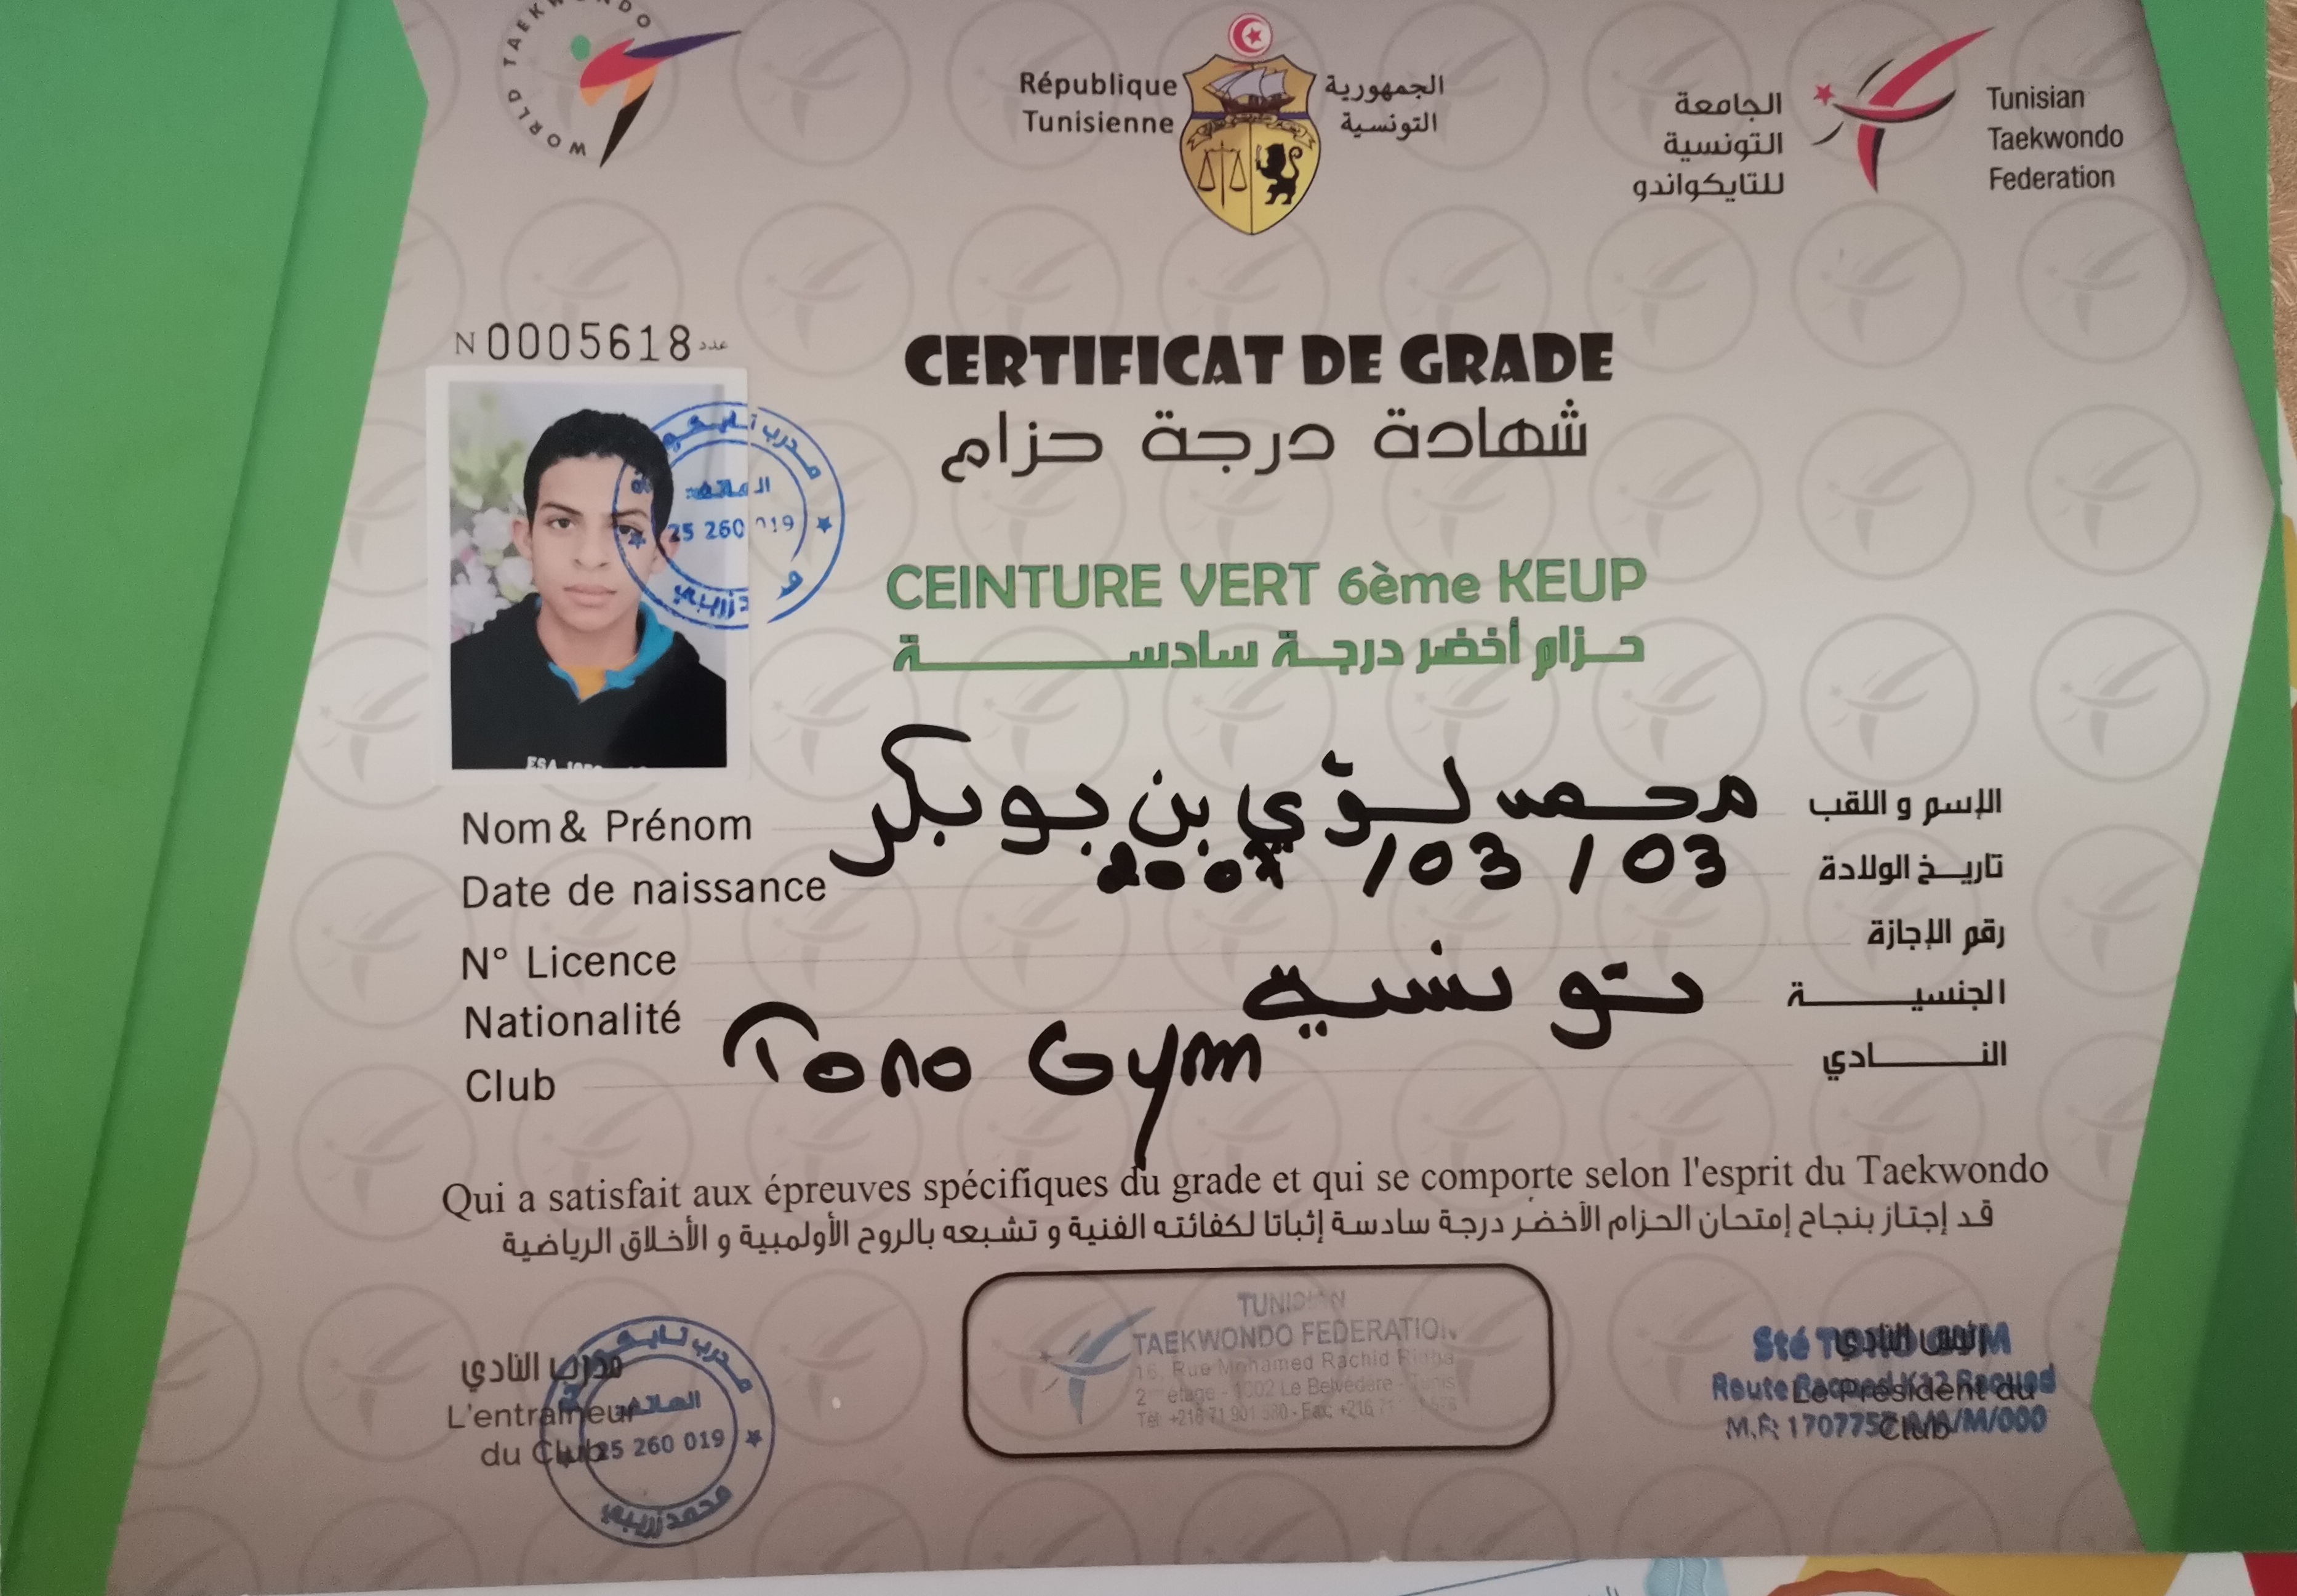 WORLD TAEKWONDO
République
Tunisienne
الجمهورية
التونسية
الجامعة
التونسية
للتايكواندو
Tunisian
Taekwondo
Federation
N 0005618 عدد
CERTIFICAT DE GRADE
شهادة درجة حزام
CEINTURE VERT 6ème KEUP
حزام أخضر درجة سادسة
مدرب
الهاتف
25 260 019
Nom & Prénom محمد لؤي بن بوبكر الإسم و اللقب
Date de naissance 03 / 03 / تاريخ الولادة
N° Licence رقم الإجازة
Nationalité تونسية الجنسية
Club Tono Gym النادي
Qui a satisfait aux épreuves spécifiques du grade et qui se comporte selon l'esprit du Taekwondo
قد إجتاز بنجاح إمتحان الحزام الأخضر درجة سادسة إثباتا لكفائته الفنية و تشبعه بالروح الأولمبية و الأخلاق الرياضية
مدرب النادي
L'entraîneur
du Club
مدرب
الهاتف
25 260 019
محمد زريبي
TUNISIAN
TAEKWONDO FEDERATION
16, Rue Mohamed Rachid
2 étage - 1002 Le Belvédère - Tunis
Tél +216 71 901
رئيس النادي
Le Président du
Club
Sté TONO GYM
Route Raoued K12 Raoued
M.F: 170775 /M/000